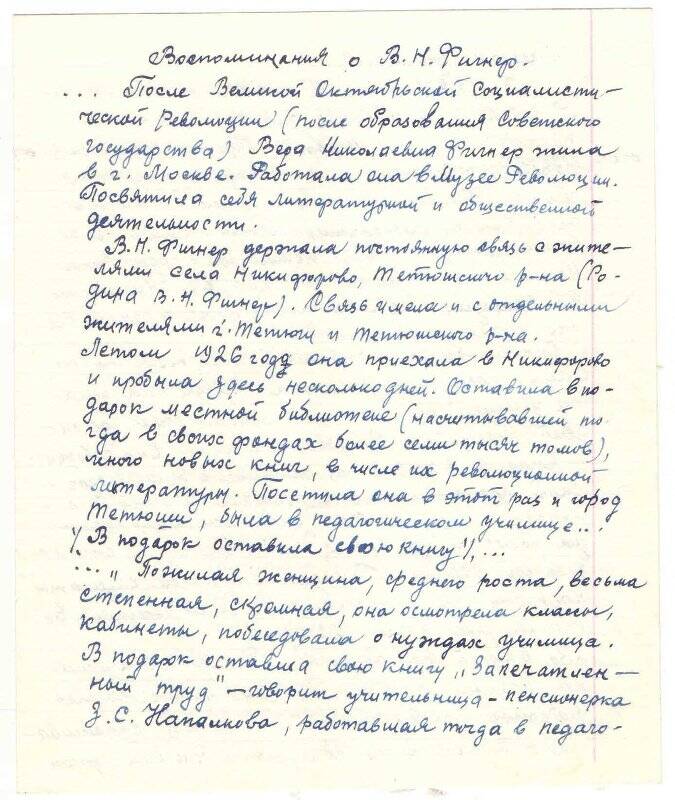 Воспоминания о В. Н. Фигнер.
... После Великой Октябрьской Социалисти-
ческой Революции (после образования Советского
государства) Вера Николаевна Фигнер жила
в г. Москве. Работала она в Музее Революции.
Посвятила себя литературной и общественной
деятельности.
В. Н. Фигнер держала постоянную связь с жите-
лями села Никифорово, Тетюшского р-на (Ро-
дина В. Н. Фигнер). Связь имела и с отдельными
жителями г. Тетюши и Тетюшского р-на.
Летом 1926 года она приехала в Никифорово
и пробыла здесь несколько дней. Оставила в по-
дарок местной библиотеке (насчитывавшей то-
гда в своих фондах более семи тысяч томов),
много новых книг, в числе их революционной
литературы. Посетила она в этот раз и город
Тетюши, была в педагогическом училище...
% В подарок оставила свою книгу %, ...
... „Пожилая женщина, среднего роста, весьма
степенная, скромная, она осмотрела классы,
кабинеты, побеседовала о нуждах училища.
В подарок оставила свою книгу „Запечатлен-
ный труд" – говорит учительница - пенсионерка
З. С. Напалкова, работавшая тогда в педаго-